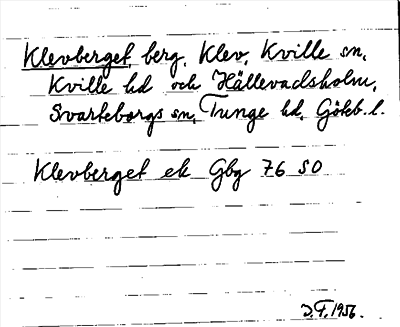 Klevberget, berg, Klev, Kville sn,
Kville hd och Hällevadsholm,
Svarteborgs sn, Tunge hd, Göteb. l.
Klevberget ek Gbg 76 SO
D.F. 1956.